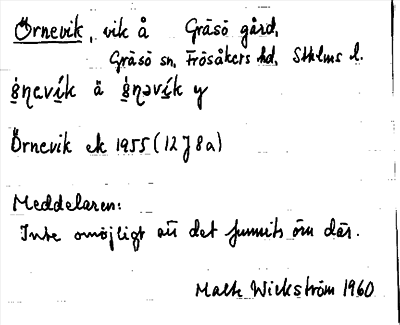 Örnevik, vik å Gräsö gård,
Gräsö sn, Frösåkers hd, Sthlms l.
ä y
Örnevik ek 1955 (12 J 8 a)
Meddelaren:
Inte omöjligt att det funnits örn där.
Mats Wickström 1960